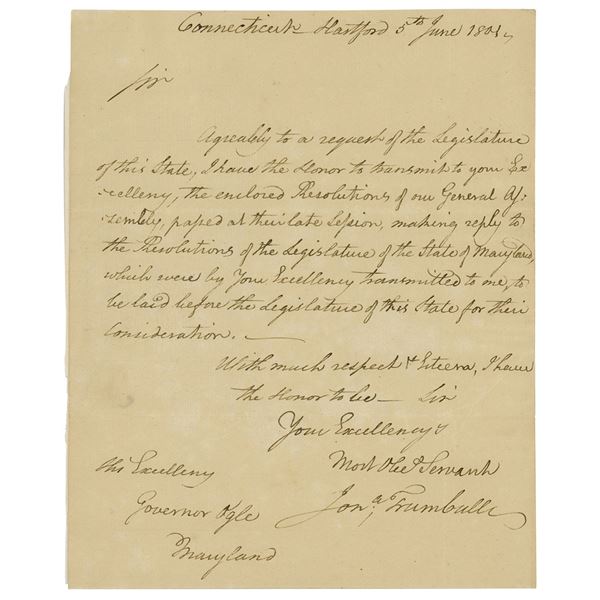 Connecticut Hartford 5th June 1801,
Sir
Agreably to a request of the Legislature
of this State, I have the Honor to transmit to your Ex=
=celleny, the enclosed Resolutions of our General As=
=sembly, passed at their late Session, making reply to
the Resolutions of the Legislature of the State of Maryland,
which were by Your Excellency transmitted to me, to
be laid before the Legislature of this State for their
Consideration. —
With much respect & Esteem, I have
the Honor to be — Sir
Your Excellency's
Most Obed Servant
Jona; Trumbull
His Excelleny
Governor Ogle
Maryland